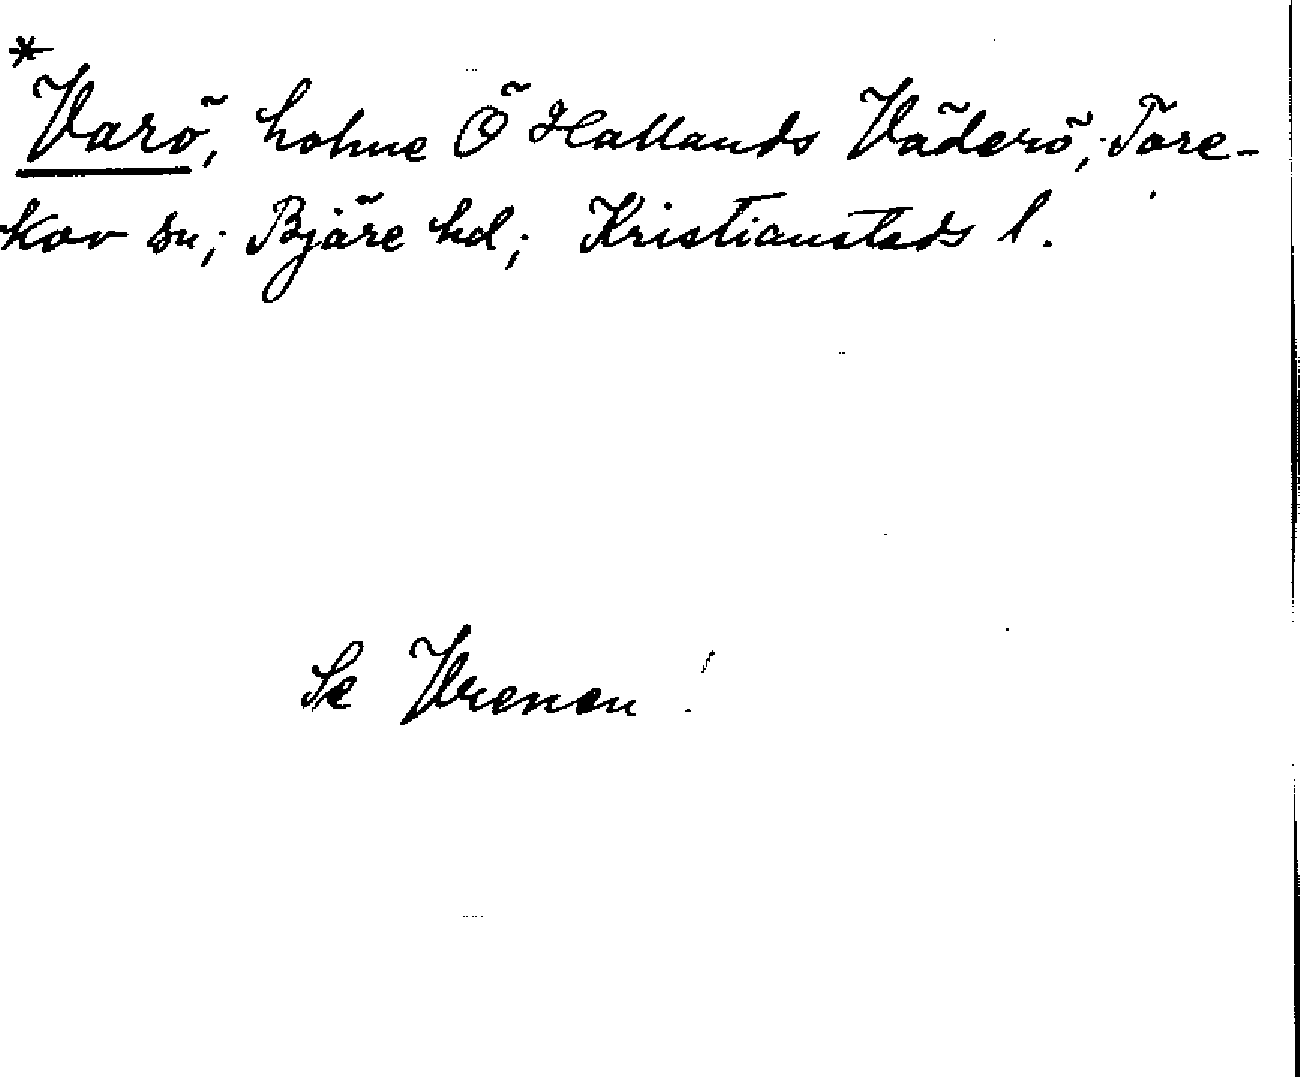 *
Varö, holme Ö Hallands Väderö; Tore-
kov sn; Bjäre hd; Kristianstads l.
Se Vrenen!